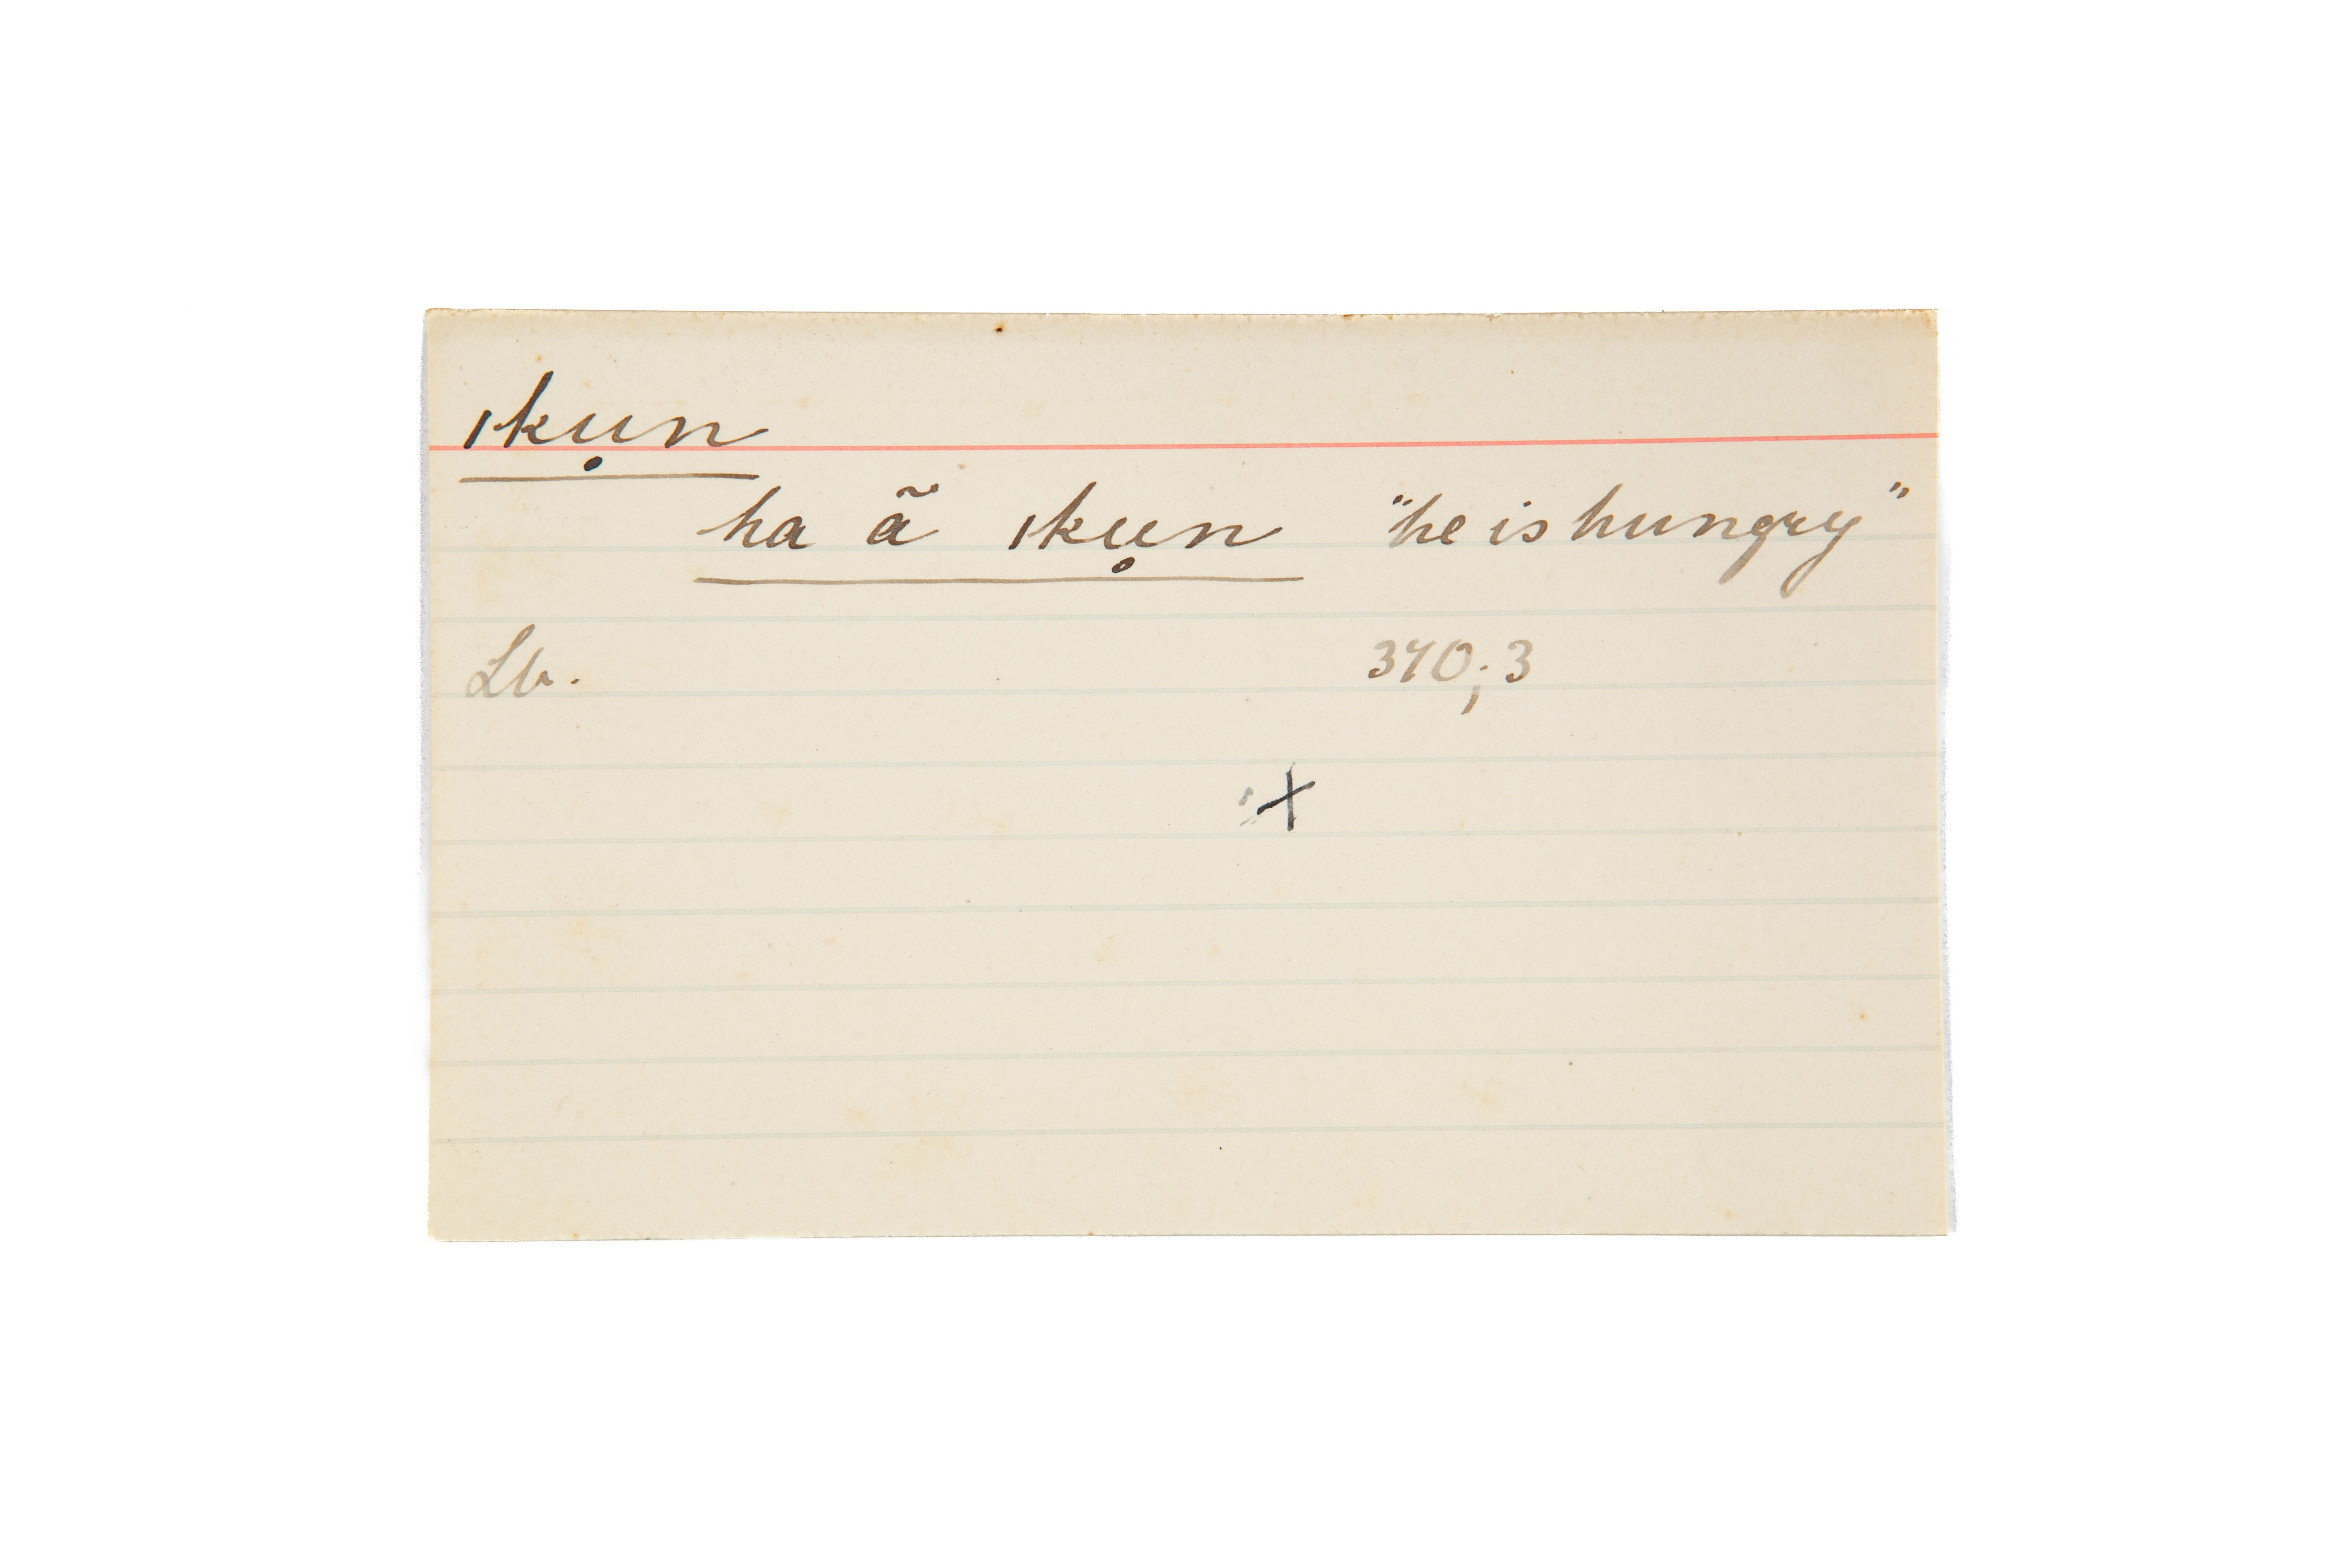 ıkụn
ha ã ıkụn "he is hungry"
Lb. 370; 3
X